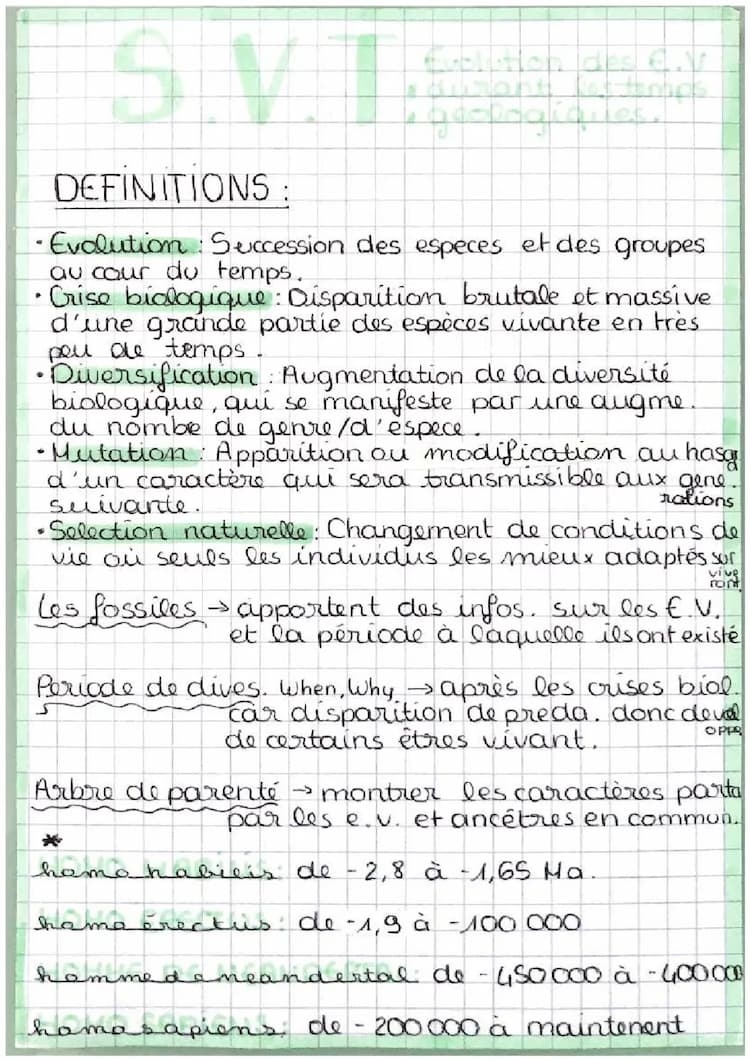 S.V.T
Evolution des E.V
durant les temps
géologiques.
DEFINITIONS :
• Evolution : Succession des especes et des groupes
au cour du temps.
• Crise biologique : Disparition brutale et massive
d'une grande partie des espèces vivante en très
peu de temps.
• Diversification : Augmentation de la diversité
biologique, qui se manifeste par une augme.
du nombe de genre/d'espece.
• Mutation : Apparition ou modification au hasa
d'un caractère qui sera transmissible aux gene.
rations
suivante.
• Selection naturelle : Changement de conditions de
vie où seuls les individus les mieux adaptés sur
vive
ront
Les fossiles → apportent des infos. sur les E.V.
et la période à laquelle ils ont existé
Periode de dives. When, Why → après les crises biol.
car disparition de preda. donc devel
oppe
de certains êtres vivant.
Arbre de parenté → montrer les caractères parta
par les e.v. et ancêtres en commun.
*
homo habilis : de -2,8 à -1,65 Ma.
homo érectus : de -1,9 à -100 000
homme de neandertal : de -450 000 à -400 000
homo sapiens : de -200 000 à maintenent